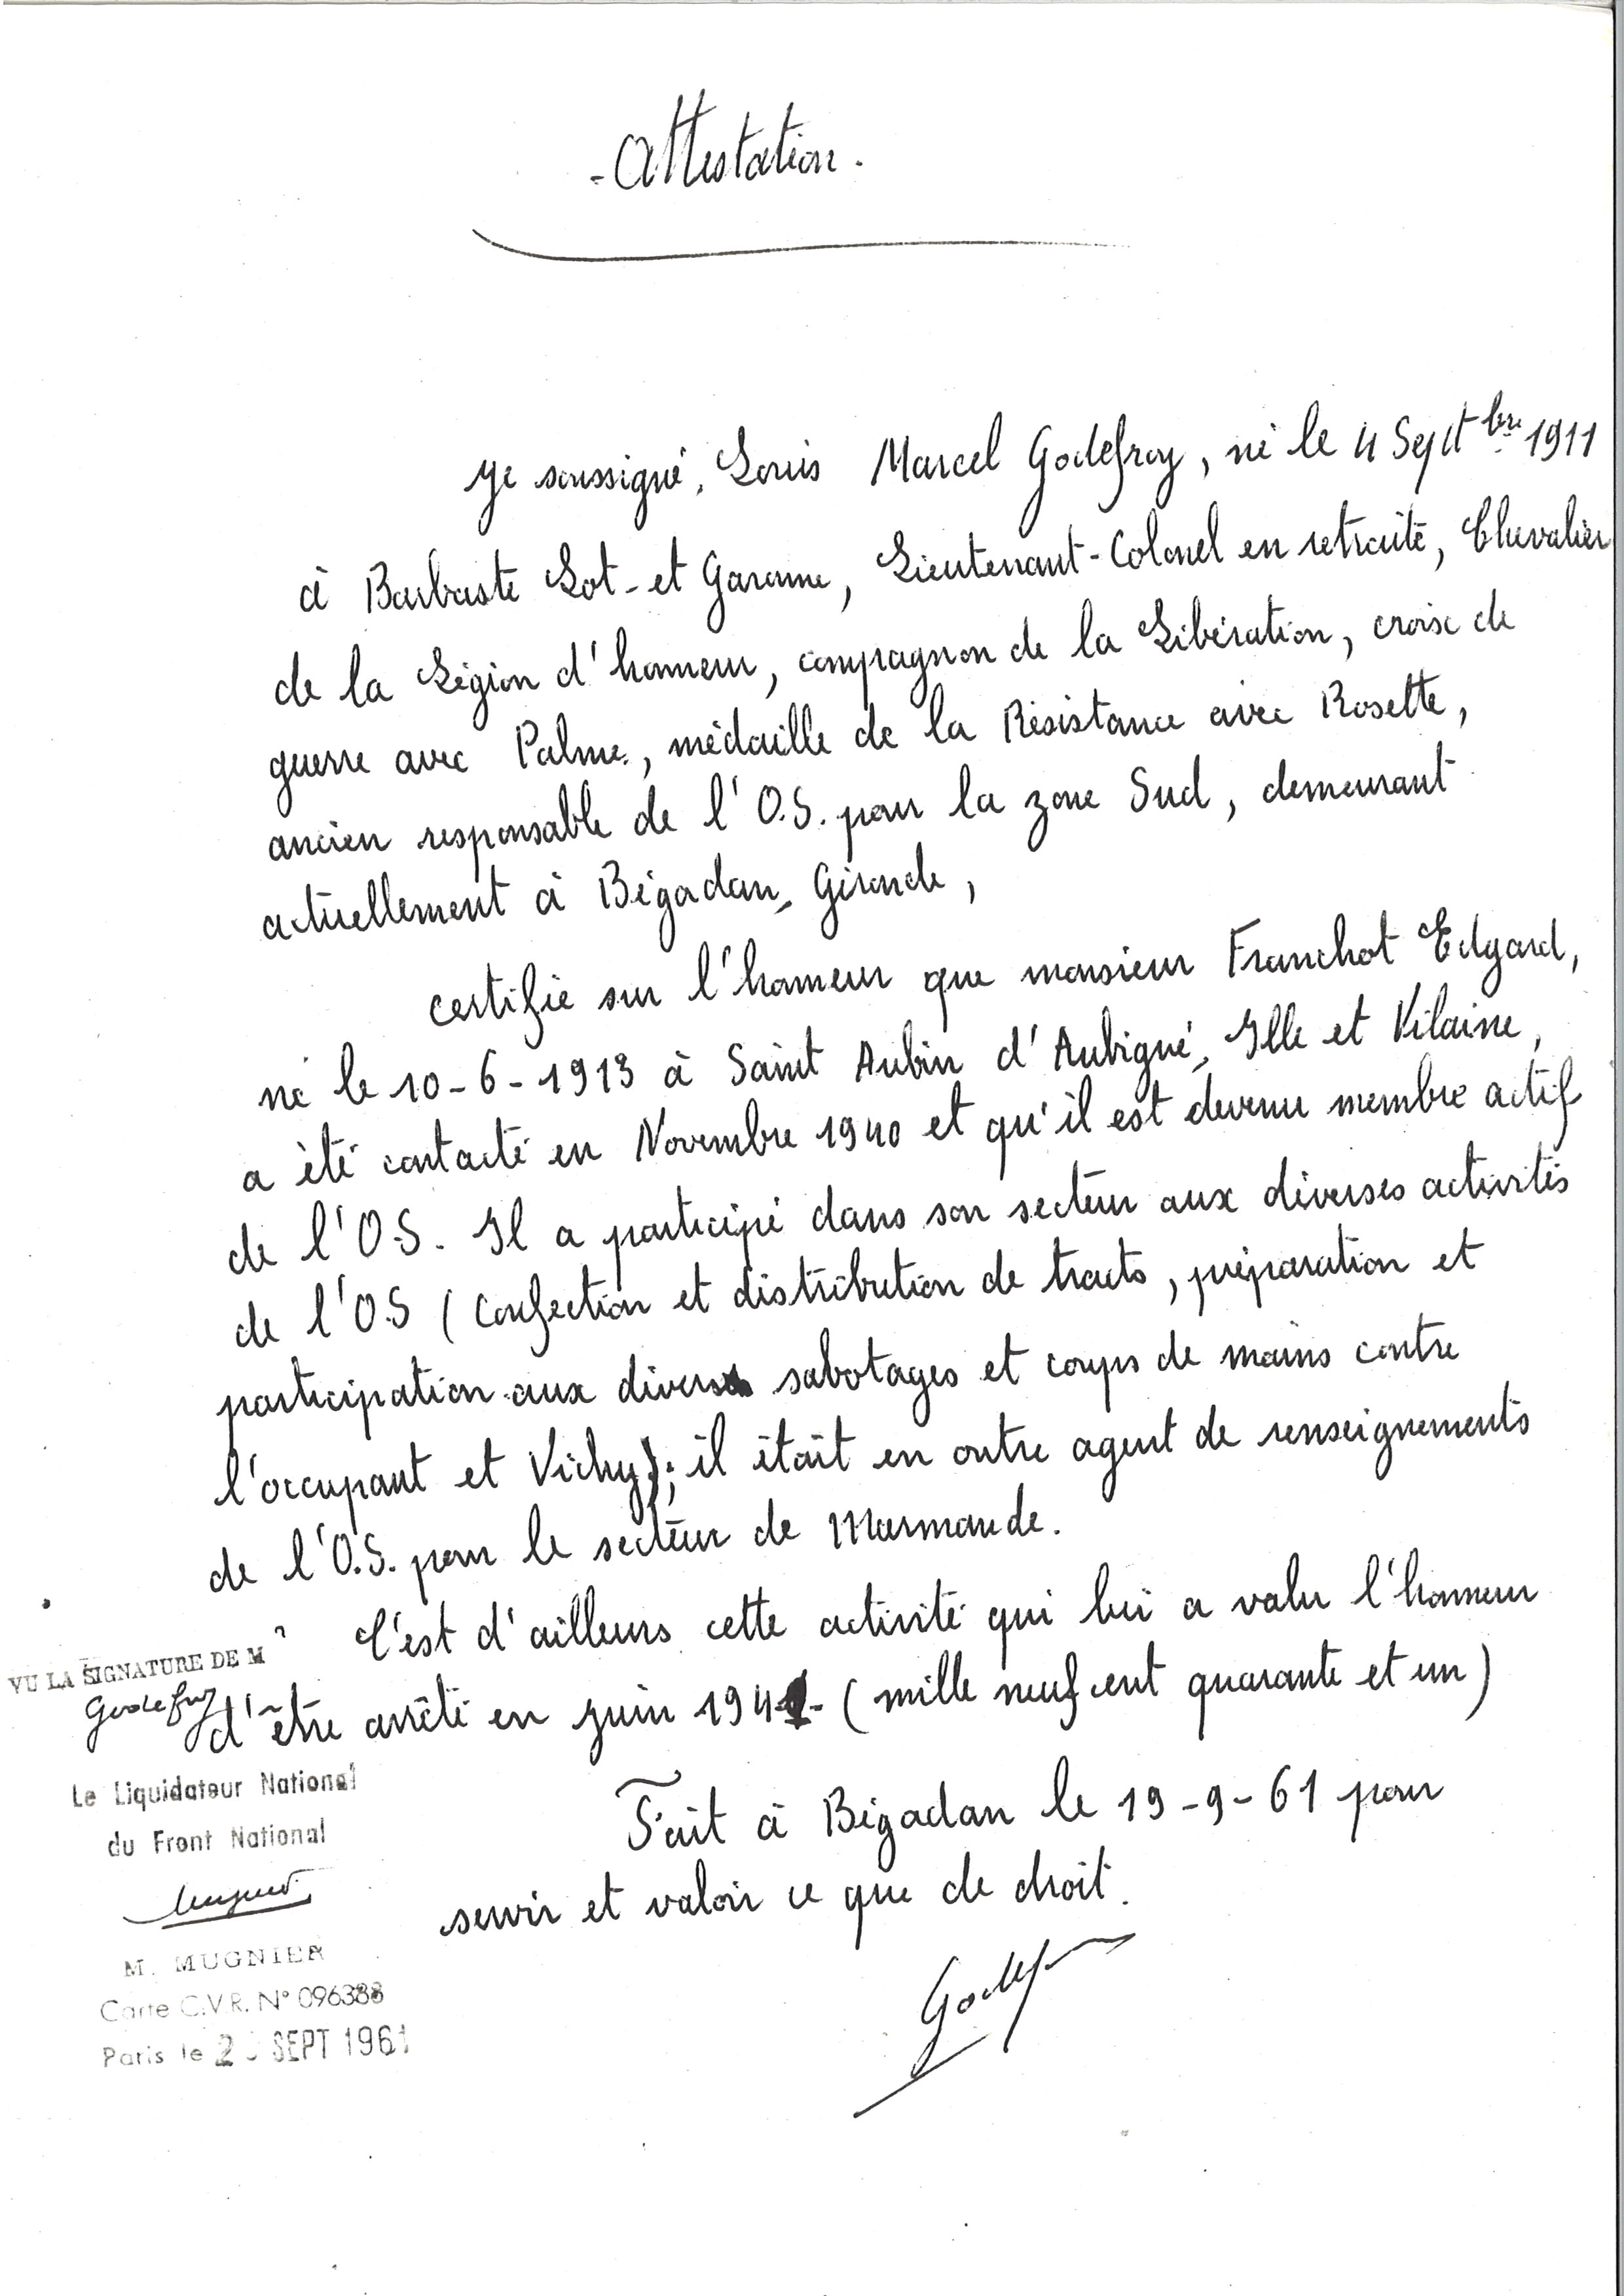 - Attestation -
Je soussigné, Louis Marcel Godefroy, né le 4 Sept bre 1911
à Barbaste Lot-et Garonne, Lieutenant-Colonel en retraite, Chevalier
de la Légion d'honneur, compagnon de la Libération, croix de
guerre avec Palme, médaille de la Résistance avec Rosette,
ancien responsable de l'O.S. pour la zone Sud, demeurant
actuellement à Bégadan, Gironde,
certifie sur l'honneur que monsieur Franchot Edgard,
né le 10-6-1913 à Saint Aubin d'Aubigné, Ille et Vilaine,
a été contacté en Novembre 1940 et qu'il est devenu membre actif
de l'O.S. Il a participé dans son secteur aux diverses activités
de l'O.S (Confection et distribution de tracts, préparation et
participation aux divers sabotages et coups de mains contre
l'occupant et Vichy); il était en outre agent de renseignements
de l'O.S. pour le secteur de Marmande.
C'est d'ailleurs cette activité qui lui a valu l'honneur
d'être arrêté en juin 1941 - (mille neuf cent quarante et un)
Fait à Bégadan le 19-9-61 pour
servir et valoir ce que de droit.
VU LA SIGNATURE DE M
Godefroy
Le Liquidateur National
du Front National
M. MUGNIER
Carte C.V.R. N° 096388
Paris le 2 SEPT 1961